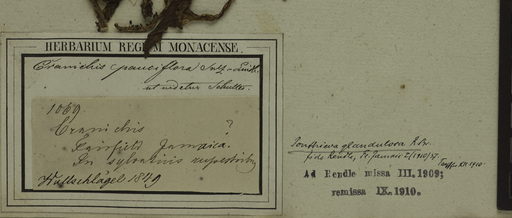 HERBARIUM REGIUM MONACENSE.
Cranichis pauciflora Sw.
ut videtur Schultes.
1069
Cranichis ?
Fairfield Jamaica.
In sylvaticis rupestribus
Wullschlägel 1849
Ponthieva glandulosa R.Br.
fide Rendle, Fl. Jamaic I (1910) 37.
XII 1910.
Ad Rendle missa III. 1909;
remissa IX. 1910.